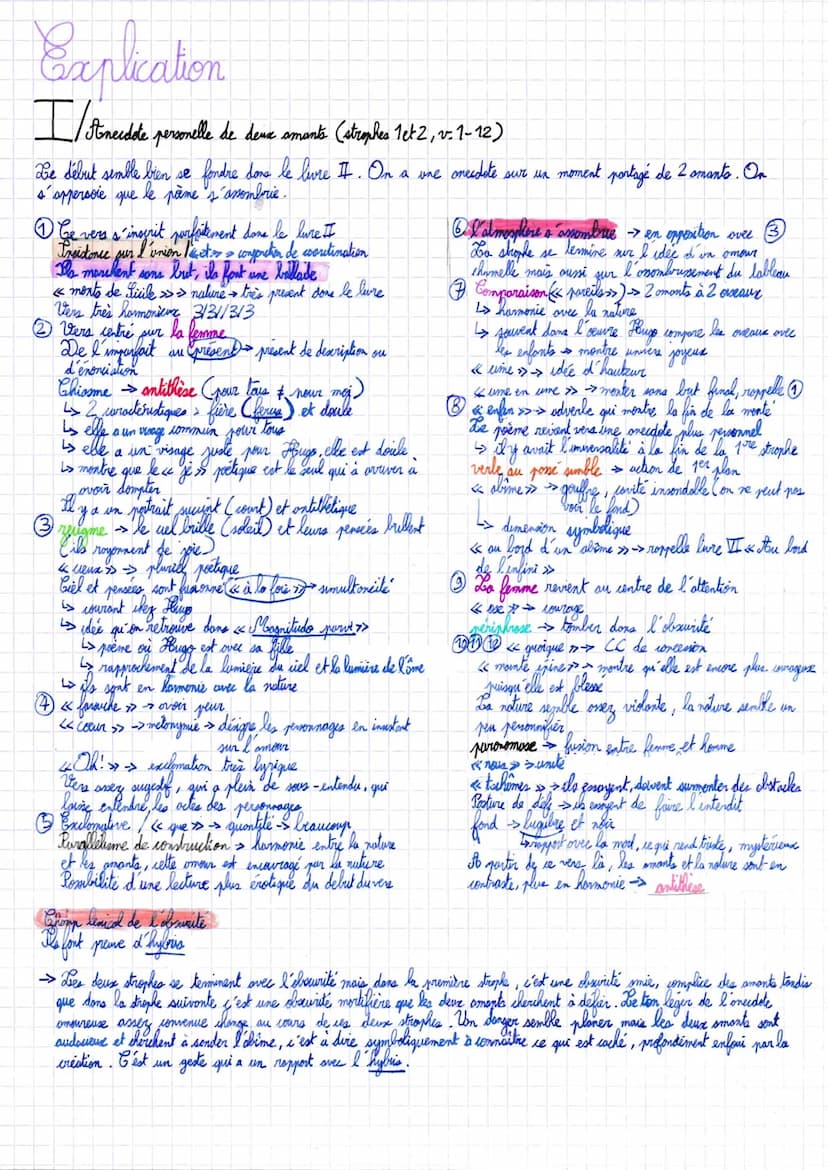 Explication
I/ Anecdote personelle de deux amants (strophes 1 et 2, v. 1-12)
Le début semble bien se fondre dans le livre II. On a une anecdote sur un moment partagé de 2 amants. On
s'apperçoie que le pème s'assombrie.
① Ce vers s'inscrit parfaitement dans le livre II
Insistance sur l'union / « et » → conjonction de coordination
Ils marchent sans but, ils font une ballade
« monts de Sicile » → nature → très présent dans le livre
Vers très harmonieux 3/3//3/3
② Vers centré sur la femme
De l'imparfait au présent → présent de description ou
d'énonciation
Chiasme → antithèse (pour tous ≠ pour moi)
↳ 2 caractéristiques : fière (ferus) et douce
↳ elle a un visage commun pour tous
↳ elle a un visage juste pour Hugo, elle est docile
↳ montre que le « je » poétique est le seul qui à arriver à
avoir dompter
Il y a un portrait succint (court) et antithétique
③ zeugme → le ciel brille (soleil) et leurs pensées brillent
(ils rayonnent de joie)
« cieux » → pluriel poétique
Ciel et pensées sont fusionné « à la fois » → simultanéité
↳ courant chez Hugo
↳ idée qu'on retrouve dans « Magnitudo parvi »
↳ poème où Hugo est avec sa fille
↳ rapprochement de la lumière du ciel et la lumière de l'âme
↳ ils sont en harmonie avec la nature
④ « farouche » → avoir peur
« cœur » → métonymie → désigne les personnages en insistant
sur l'amour
« Oh! » → exclamation très lyrique
Vers assez sugestif, qui a plein de sous-entendu, qui
laisse entendre les actes des personnages
⑤ Exclamative / « que » → quantité → beaucoup
Parallélisme de construction → harmonie entre la nature
et les amants, cette amour est encouragé par la nature
Possibilité d'une lecture plus érotique du debut du vers
⑥ l'atmosphère s'assombrie → en opposition avec ③
La strophe se termine sur l'idée d'un amour
charnelle mais aussi sur l'assombrissement du tableau
⑦ Comparaison (« pareils ») → 2 amants à 2 oiseaux
↳ harmonie avec la nature
↳ souvent dans l'œuvre Hugo compare les oiseaux avec
les enfants → montre univers joyeux
« cime » → idée d'hauteur
« cime en cime » → monter sans but final, rappelle ①
⑧ « enfin » → adverbe qui montre la fin de la monté
Le poème revient vers une anecdote plus personnel
↳ il y avait l'universalité à la fin de la 1ère strophe
verbe au passé simple → action de 1er plan
« abîme » → gouffre, cavité insondable (on ne peut pas
voir le fond)
↳ dimension symbolique
« au bord d'un abîme » → rappelle livre VI « Au bord
de l'infini »
⑨ La femme revient au centre de l'attention
« ose » → courage
périphrase → tomber dans l'obscurité
⑩⑪⑫ « quoique » → CC de concession
« mainte épine » → montre qu'elle est encore plus courageuse
puisqu'elle est blessé
La nature semble assez violante, la nature semble un
peu personnifier
paronomase → fusion entre femme et homme
« nous » → unité
« tachâmes » → ils essayent, doivent surmonter des obstacles
Posture de défi → ils essayent de faire l'interdit
fond → lugubre et noir
↳ rapport avec la mort, ce qui rend triste, mystérieux
A partir de ce vers là, les amants et la nature sont en
contraste, plus en harmonie → antithèse
Champ lexical de l'obscurité
Ils font preuve d'hybris
→ Les deux strophes se terminent avec l'obscurité mais dans la première strophe, c'est une obscurité amie, complice des amants tandis
que dans la strophe suivante c'est une obscurité mortifière que les deux amants cherchent à défier. Le ton léger de l'anecdote
amoureuse assez convenue change au cours de ces deux strophes. Un danger semble planer mais les deux amants sont
audacieux et cherchent à sonder l'abîme, c'est à dire symboliquement à connaître ce qui est caché, profondément enfoui par la
création. C'est un geste qui a un rapport avec l'hybris.